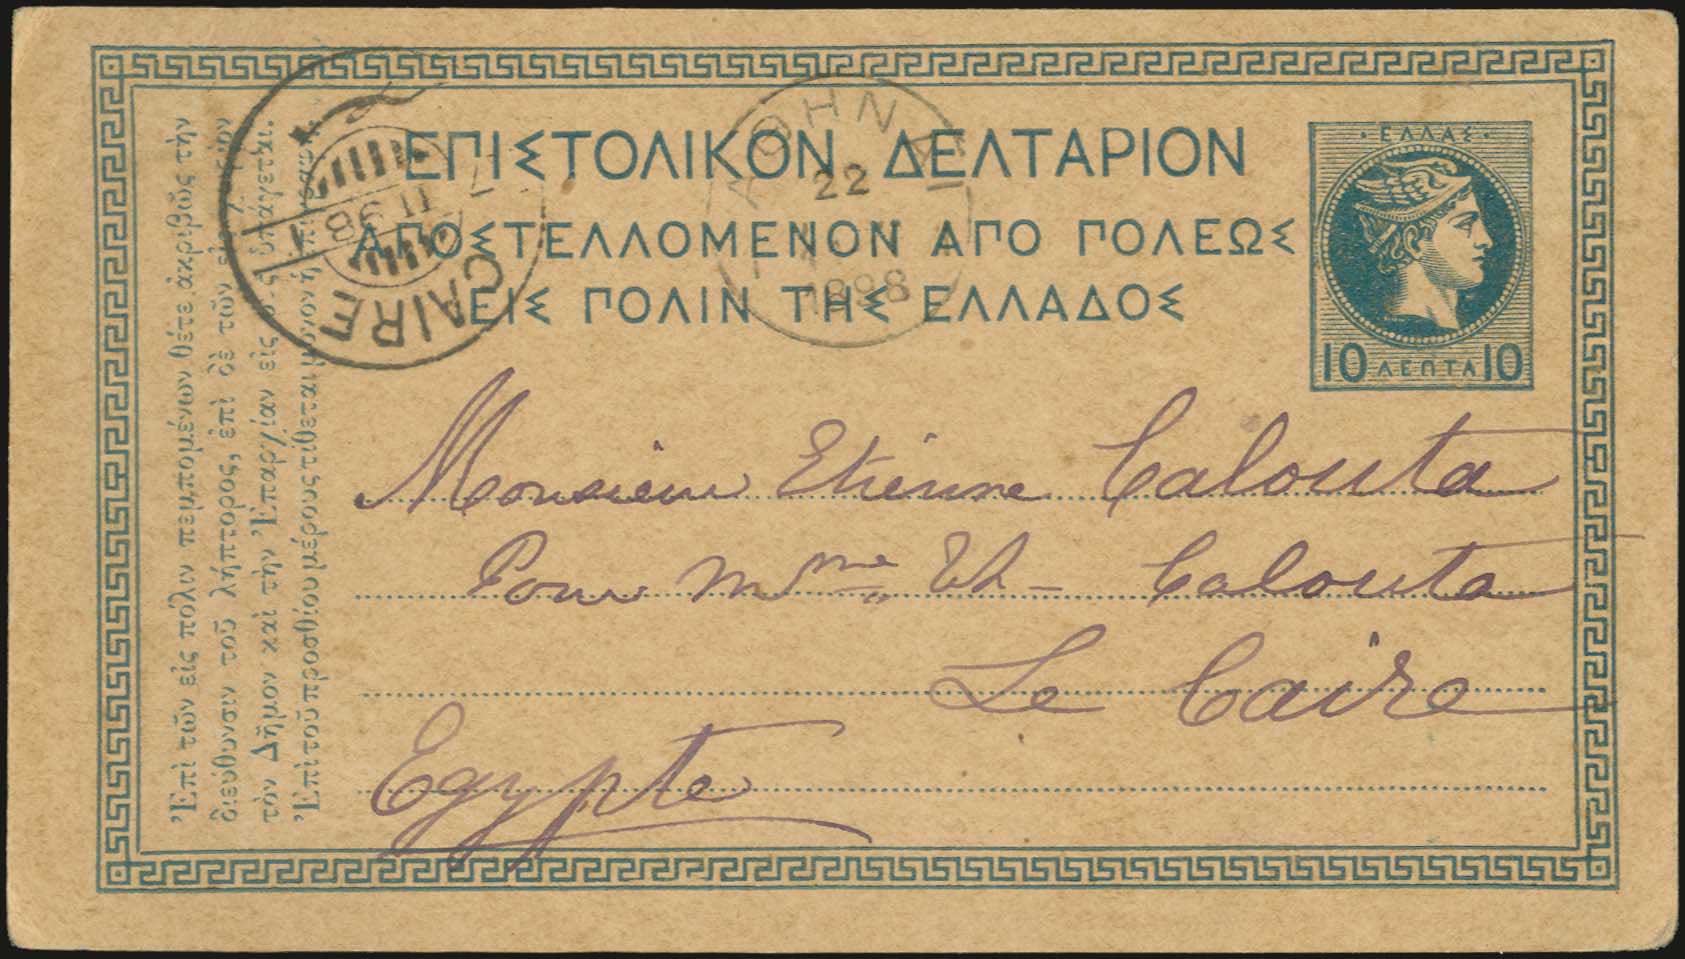 ΕΠΙΣΤΟΛΙΚΟΝ ΔΕΛΤΑΡΙΟΝ
ΑΠΟΣΤΕΛΛΟΜΕΝΟΝ ΑΠΟ ΠΟΛΕΩΣ
ΕΙΣ ΠΟΛΙΝ ΤΗΣ ΕΛΛΑΔΟΣ
· ΕΛΛΑΣ ·
10 ΛΕΠΤΑ 10
ΑΘΗΝΑΙ
22
1898
CAIRE
II 98
Monsieur Etiénne Calouta
Pour Mme Th - Calouta
Le Caire
Egypte
Ἐπὶ τῶν εἰς πόλιν πεμπομένων θέτε ἀκριβῶς τὴν
διεύθυνσιν τοῦ λήπτορος, ἐπὶ δὲ τῶν
τὸν Δῆμον καὶ τὴν Ἐπαρχίαν εἰς ὑπάγεται.
Ἐπὶ τοῦ προσθίου μέρους τίθεται μόνον ἡ